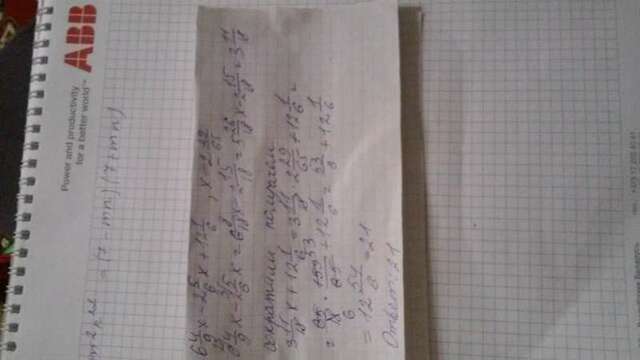 ABB
Power and productivity
for a better world™
=(7-mn)(7+mn)
6 4/9 x - 2 5/6 x + 12 1/6 , x = 2 29/65
6 4/9 x - 2 5/6 x = 6 8/18 x - 2 15/18 x = 5 26/18 x - 2 15/18 x = 3 11/18
сократили получаем
3 11/18 x + 12 1/6 = 3 11/18 · 2 29/65 + 12 1/6 =
= 65/18 · 159/65 + 12 1/6 = 53/6 + 12 1/6
= 12 54/6 = 21
Ответ: 21